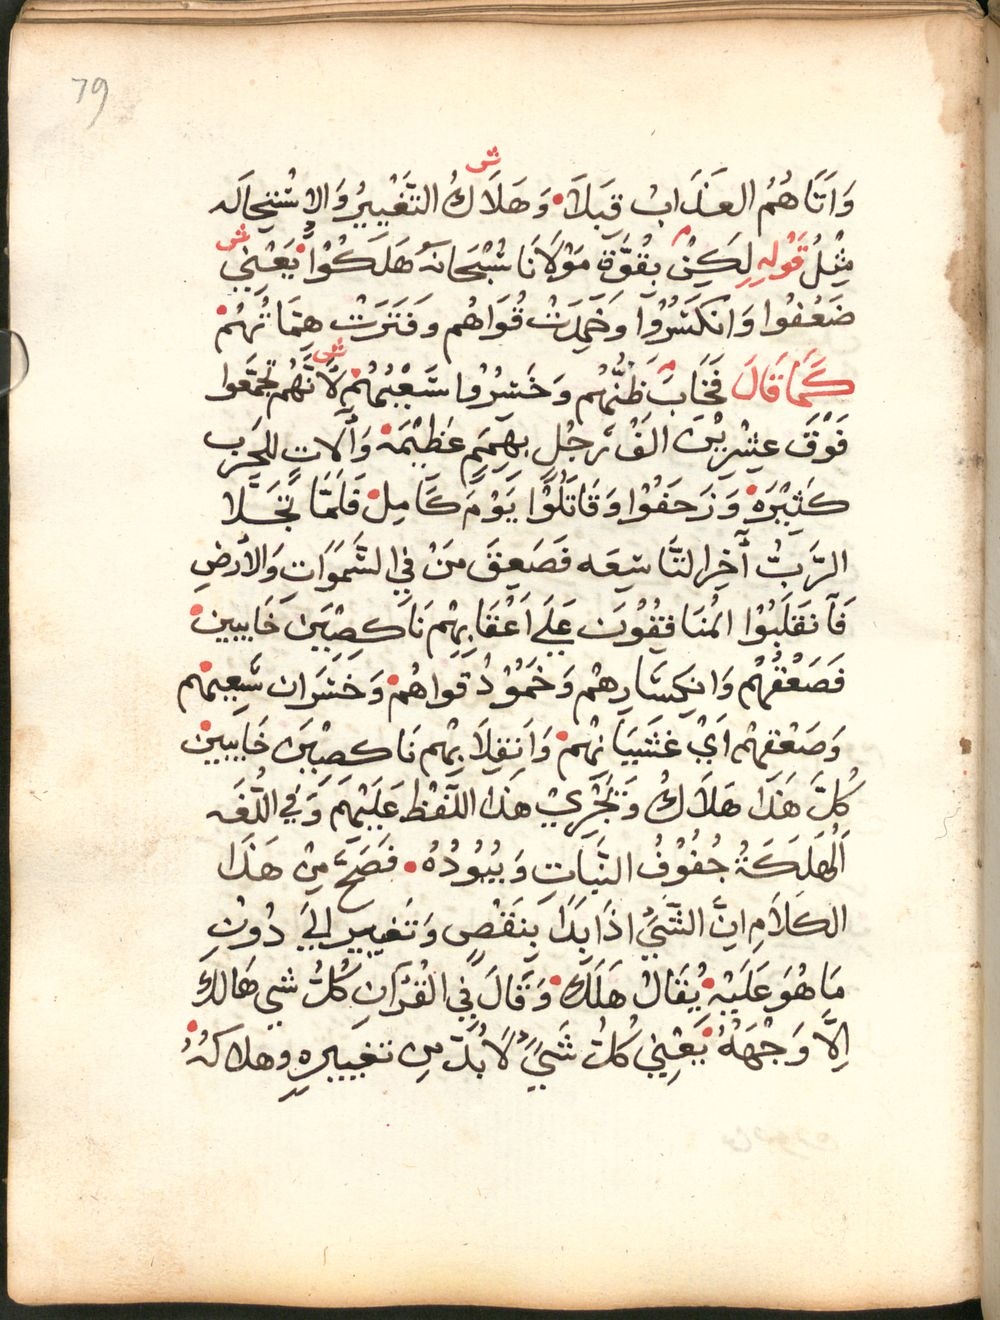 79
ش
وَاَتَاهُمُ العَذَابُ قِبَلاً وَهَلَاكُ التَّغْيِيرُ وَالاِسْتِحَاله
مِثْلُ قَوْلِهِ لَكِنْ بِقُوَّةِ مَوْلَانَا سُبْحَانَهُ هَلَكُوْا يَعْنِي ش
ضَعُفُوا وَانكَسَرُوْا وَخَمِدَتْ قُوَاهُم وفَتَرَتْ هِمَّاتُهُمْ
كَمَا قَالَ فَخَابَ ظَنُّهُم وَخَسِرُوا سَعْيُهُمْ ش لَاَنَّهُم تجَمَّعوا
فَوْقَ عِشْرِيْنَ الَفْ رَجُلٍ بِهِمَمٍ عَظِيْمَة وَأَلاتٍ للحَرْبِ
كَثِيْرَة وَزَحَفُوْا وَقَاتَلُوْا يَوْمَ كَامِل فَلَمَّا تَجَلَّا
الرَّبُّ أَخِر التَّاسِعَه فَصَعِقَ مَنْ فِي السَّمَوَاتِ وَالأرضِ
فَآنقَلَبُوْا المُنَافِقُوْنَ عَلَى اَعْقَابِهِمْ نَاكِصِيْنَ خَايبين
فَصَعْقُهُمْ وَانكِسَارِهمْ وَخُمُوْدُ قواهُم وَخسَران سَعِيهم
وَصَعْقهمْ اَيْ غشَيَانهُمْ وَانقِلَابِهْم نَاكصِيْنَ خَايبين
كُلَّ هَذَا هَلَاكُ وَيَجْرِيْ هَذا اللَّفْظ عَلَيْهم وَفي اللُّغَه
اَلْهَلَكَةُ جُفُوْفُ النَّبَاتِ وَبُيُوْدُهُ فَصَحَّ مِنْ هَذَا
الكَلَامِ انَّ الشَّيُ اذَا بَدَا بِنَقْصٍ وَتَغيير الىَ دُوْنِ
مَا هُوَ عَلَيْهِ يُقَالُ هَلَكَ وَقَالَ فِي القُرْآنِ كُلُّ شي هَالكَ
اِلَّا وَجْهَهُ يَعْنِي كُلُّ شَيْ لَا بُدَّ مِن تغييرهِ وهلاكهُ